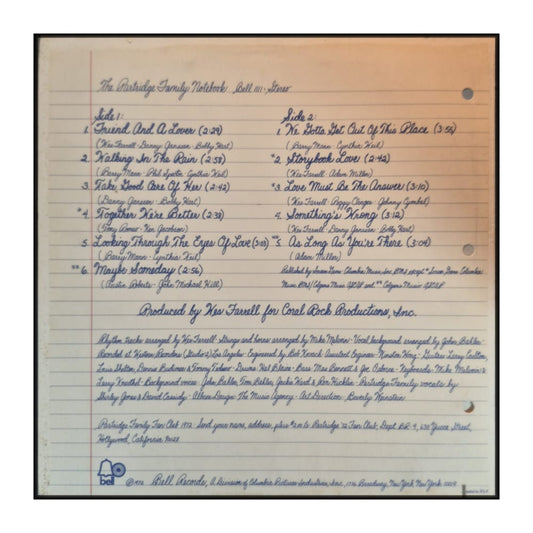 The Partridge Family Notebook Bell 1111 · Stereo
Side 1:
1. Friend And A Lover (2:29)
(Wes Farrell · Danny Janssen · Bobby Hart)
2. Walking In The Rain (2:58)
(Barry Mann · Phil Spector · Cynthia Weil)
3. Take Good Care Of Her (2:42)
(Danny Janssen · Bobby Hart)
*4. Together We're Better (2:38)
(Tony Romeo · Ken Jacobson)
5. Looking Through The Eyes Of Love (3:03)
(Barry Mann · Cynthia Weil)
**6. Maybe Someday (2:56)
(Austin Roberts · John Michael Hill)
Side 2:
1. We Gotta Get Out Of This Place (3:56)
(Barry Mann · Cynthia Weil)
*2. Storybook Love (2:42)
(Wes Farrell · Adam Miller)
*3. Love Must Be The Answer (3:10)
(Wes Farrell · Peggy Clinger · Johnny Cymbal)
4. Something's Wrong (3:12)
(Wes Farrell · Danny Janssen · Bobby Hart)
**5. As Long As You're There (3:04)
(Adam Miller)
Published by Screen Gems-Columbia Music, Inc. BMI except * Screen Gems-Columbia
Music BMI/Colgems Music ASCAP and ** Colgems Music ASCAP
Produced by Wes Farrell for Coral Rock Productions, Inc.
Rhythm tracks arranged by Wes Farrell · strings and horns arranged by Mike Melvoin · Vocal background arranged by John Bahler
Recorded at Western Recorders (Studio 2) Los Angeles · Engineered by Bob Kovach Assistant Engineer · Winston Wong · Guitars Larry Carlton,
Louis Shelton, Dennis Budimir & Tommy Tedesco · Drums Hal Blaine · Bass Max Bennett & Joe Osborn · Keyboards · Mike Melvoin &
Larry Knechtel · Background voices · John Bahler, Tom Bahler, Jackie Ward & Ron Hicklin · Partridge Family vocals by
Shirley Jones & David Cassidy · Album Design · The Music Agency · Art Direction · Beverly Weinstein
Partridge Family Fan Club 1972 Send your name, address, plus $2.00 to Partridge '72 Fan Club, Dept. BR-9, Yucca Street,
Hollywood, California 90028
bell
©1972 Bell Records, A Division of Columbia Pictures Industries, Inc., 1776 Broadway, New York, New York 10019